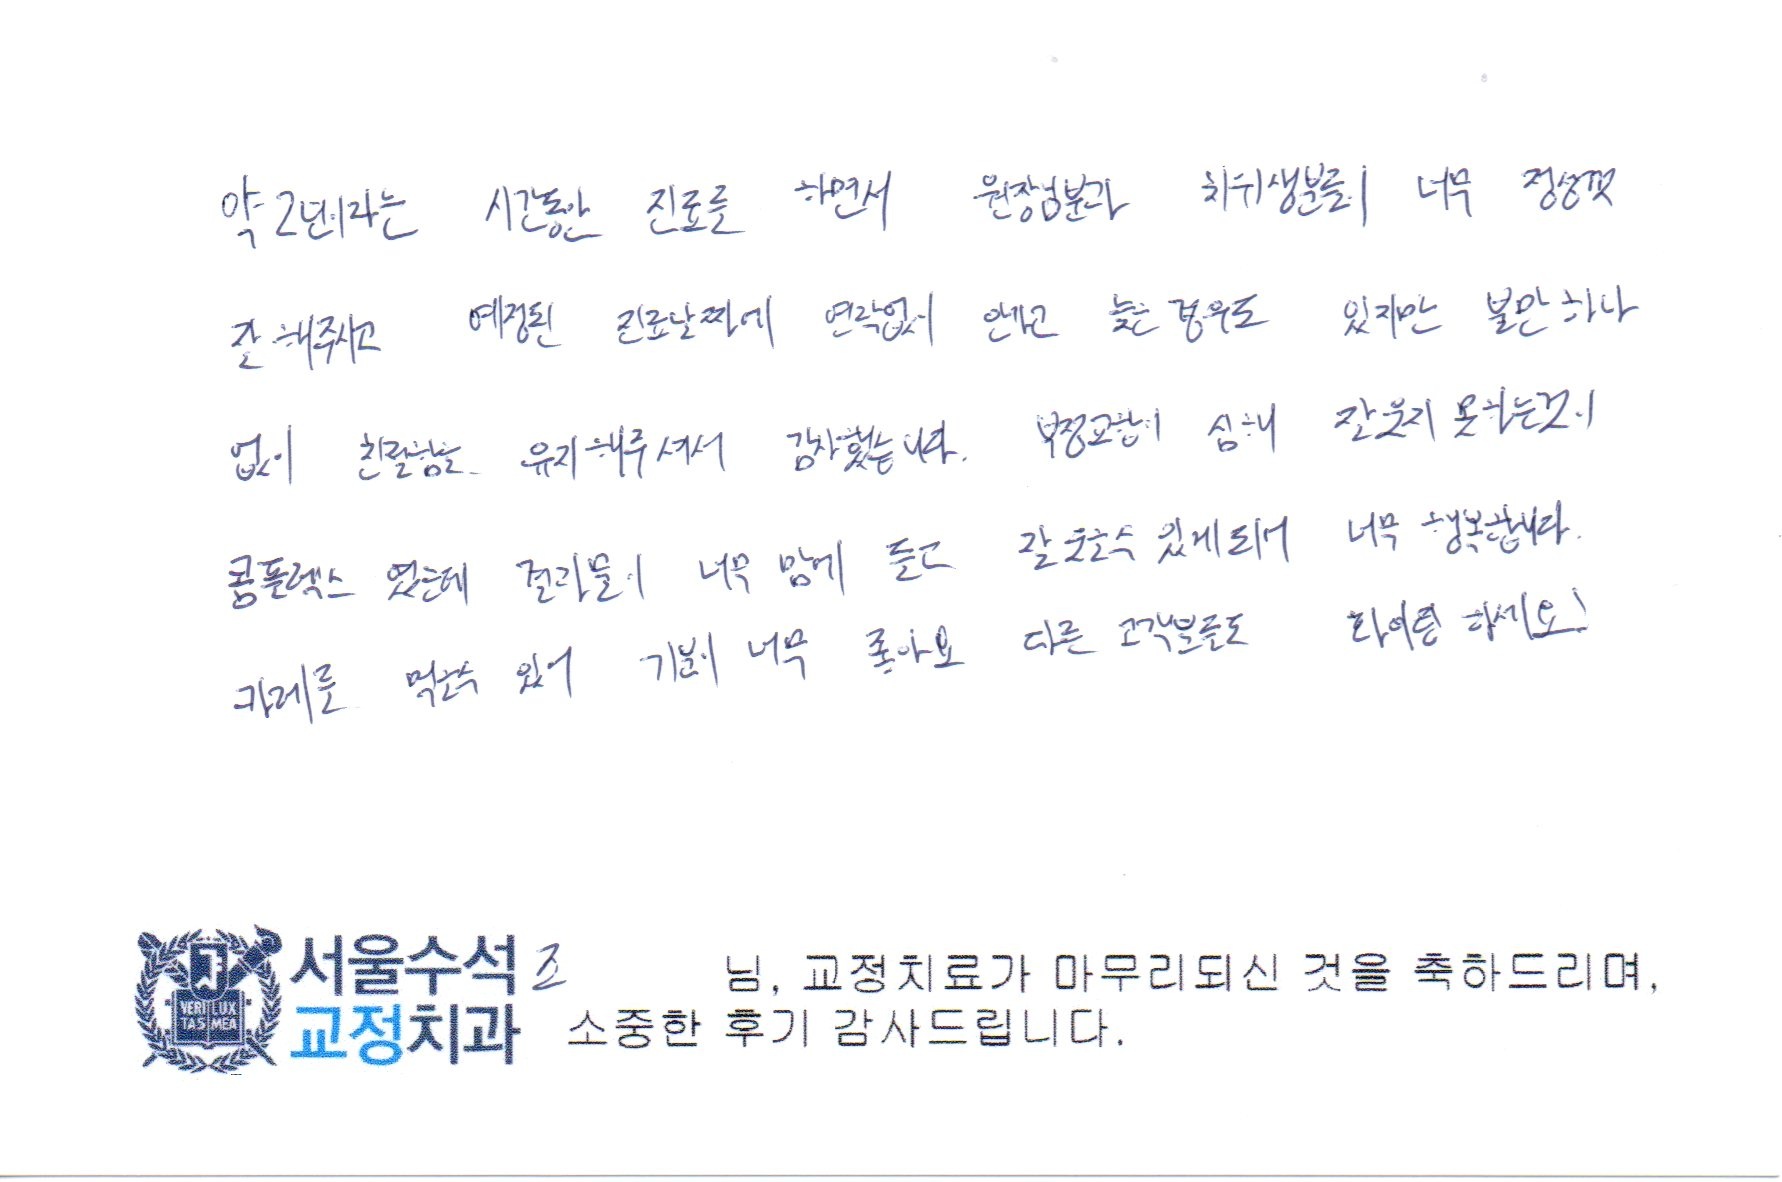 약 2년이라는 시간동안 진료를 하면서 원장님분과 치위생분들이 너무 정성껏
잘 해주시고 예정된 진료날짜에 연락없이 안가고 늦는 경우도 있지만 불만하나
없이 친절함을 유지해주셔서 감사했습니다. 부정교합이 심해 잘 웃지 못하는것이
콤플렉스 였는데 결과물이 너무 맘에 들고 잘 웃을수 있게되어 너무 행복합니다.
카레를 먹을수 있어 기분이 너무 좋아요 다른 고객분들도 화이팅 하세요!
서울수석 조 님, 교정치료가 마무리되신 것을 축하드리며,
교정치과 소중한 후기 감사드립니다.
VERI LUX
TAS MEA